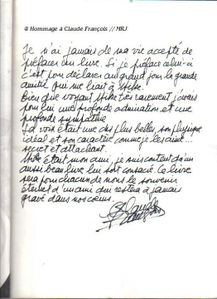 @ Hommage à Claude François // MRJ
Je n'ai jamais de ma vie accepté de
préfacer un livre. Si je préface celui-ci
c'est pour déclarer au grand jour la grande
amitié qui me liait à
Bien que voyant très rarement j'avais
pour lui une profonde admiration et une
profonde sympathie
Sa voix était une des plus belles, son physique
idéal et son caractère comme je les aime...
secret et attachant.
était mon ami, je suis content qu'un
aussi beau livre lui soit consacré. Ce livre
sera pour chacun de nous le souvenir
éternel d'un ami qui restera à jamais
gravé dans nos cœurs